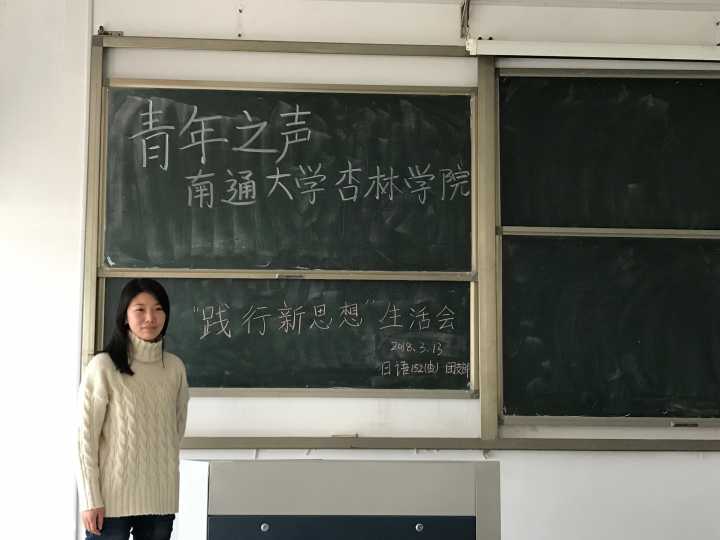 青年之声
南通大学杏林学院
"践行新思想"生活会
2018.3.13
日语152(由) 团支部